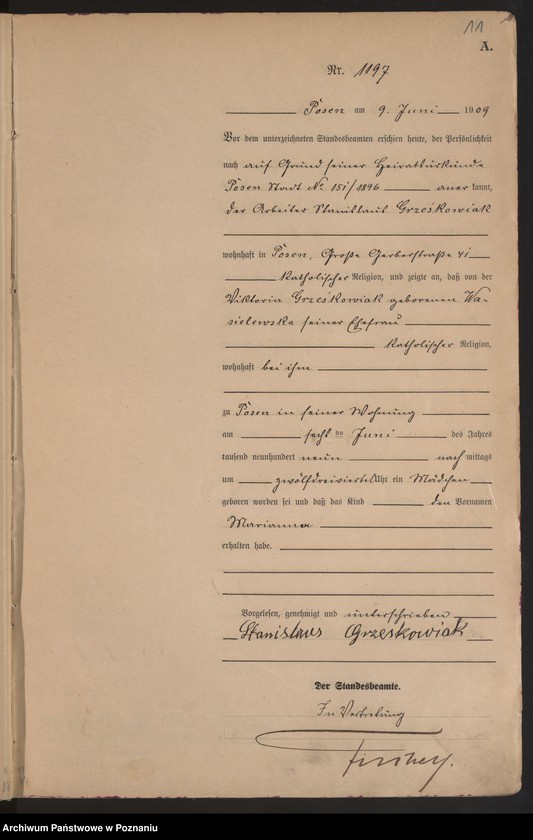 11
A.
Nr. 1197
Posen am 9. Juni 1909
Vor dem unterzeichneten Standesbeamten erschien heute, der Persönlichkeit
nach auf Grund seiner Heiratsurkunde
Posen Stadt No 151/1896 anerkannt,
der Arbeiter Stanislaus Grześkowiak
wohnhaft in Posen, Große Gerberstraße 41
katholischer Religion, und zeigte an, daß von der
Viktoria Grześkowiak geborenen Wa-
sielewska seiner Ehefrau
katholischer Religion,
wohnhaft bei ihm
zu Posen in seiner Wohnung
am sechs ten Juni des Jahres
tausend neunhundert neun nachmittags
um zwölfdreiviertel Uhr ein Mädchen
geboren worden sei und daß das Kind den Vornamen
Marianna
erhalten habe.
Vorgelesen, genehmigt und unterschrieben
Stanislaus Grzeskowiak
Der Standesbeamte.
In Vertretung
Archiwum Państwowe w Poznaniu